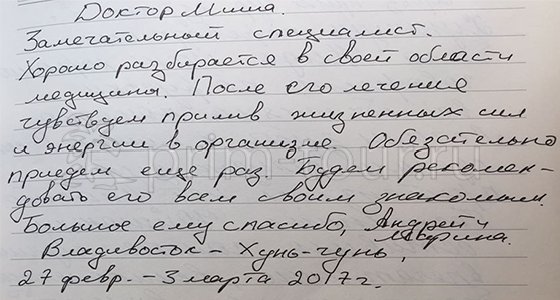 Доктор Миша.
Замечательный специалист.
Хорошо разбирается в своей области
медицина. После его лечения
чувствуем прилив жизненных сил
и энергии в организме. Обязательно
приедем еще раз. Будем рекомен-
довать его всем своим знакомым.
Большое ему спасибо, Андрей и
Марина.
Владивосток - Хунь-чунь,
27 февр. - 3 марта 2017г.
prim-tour.ru